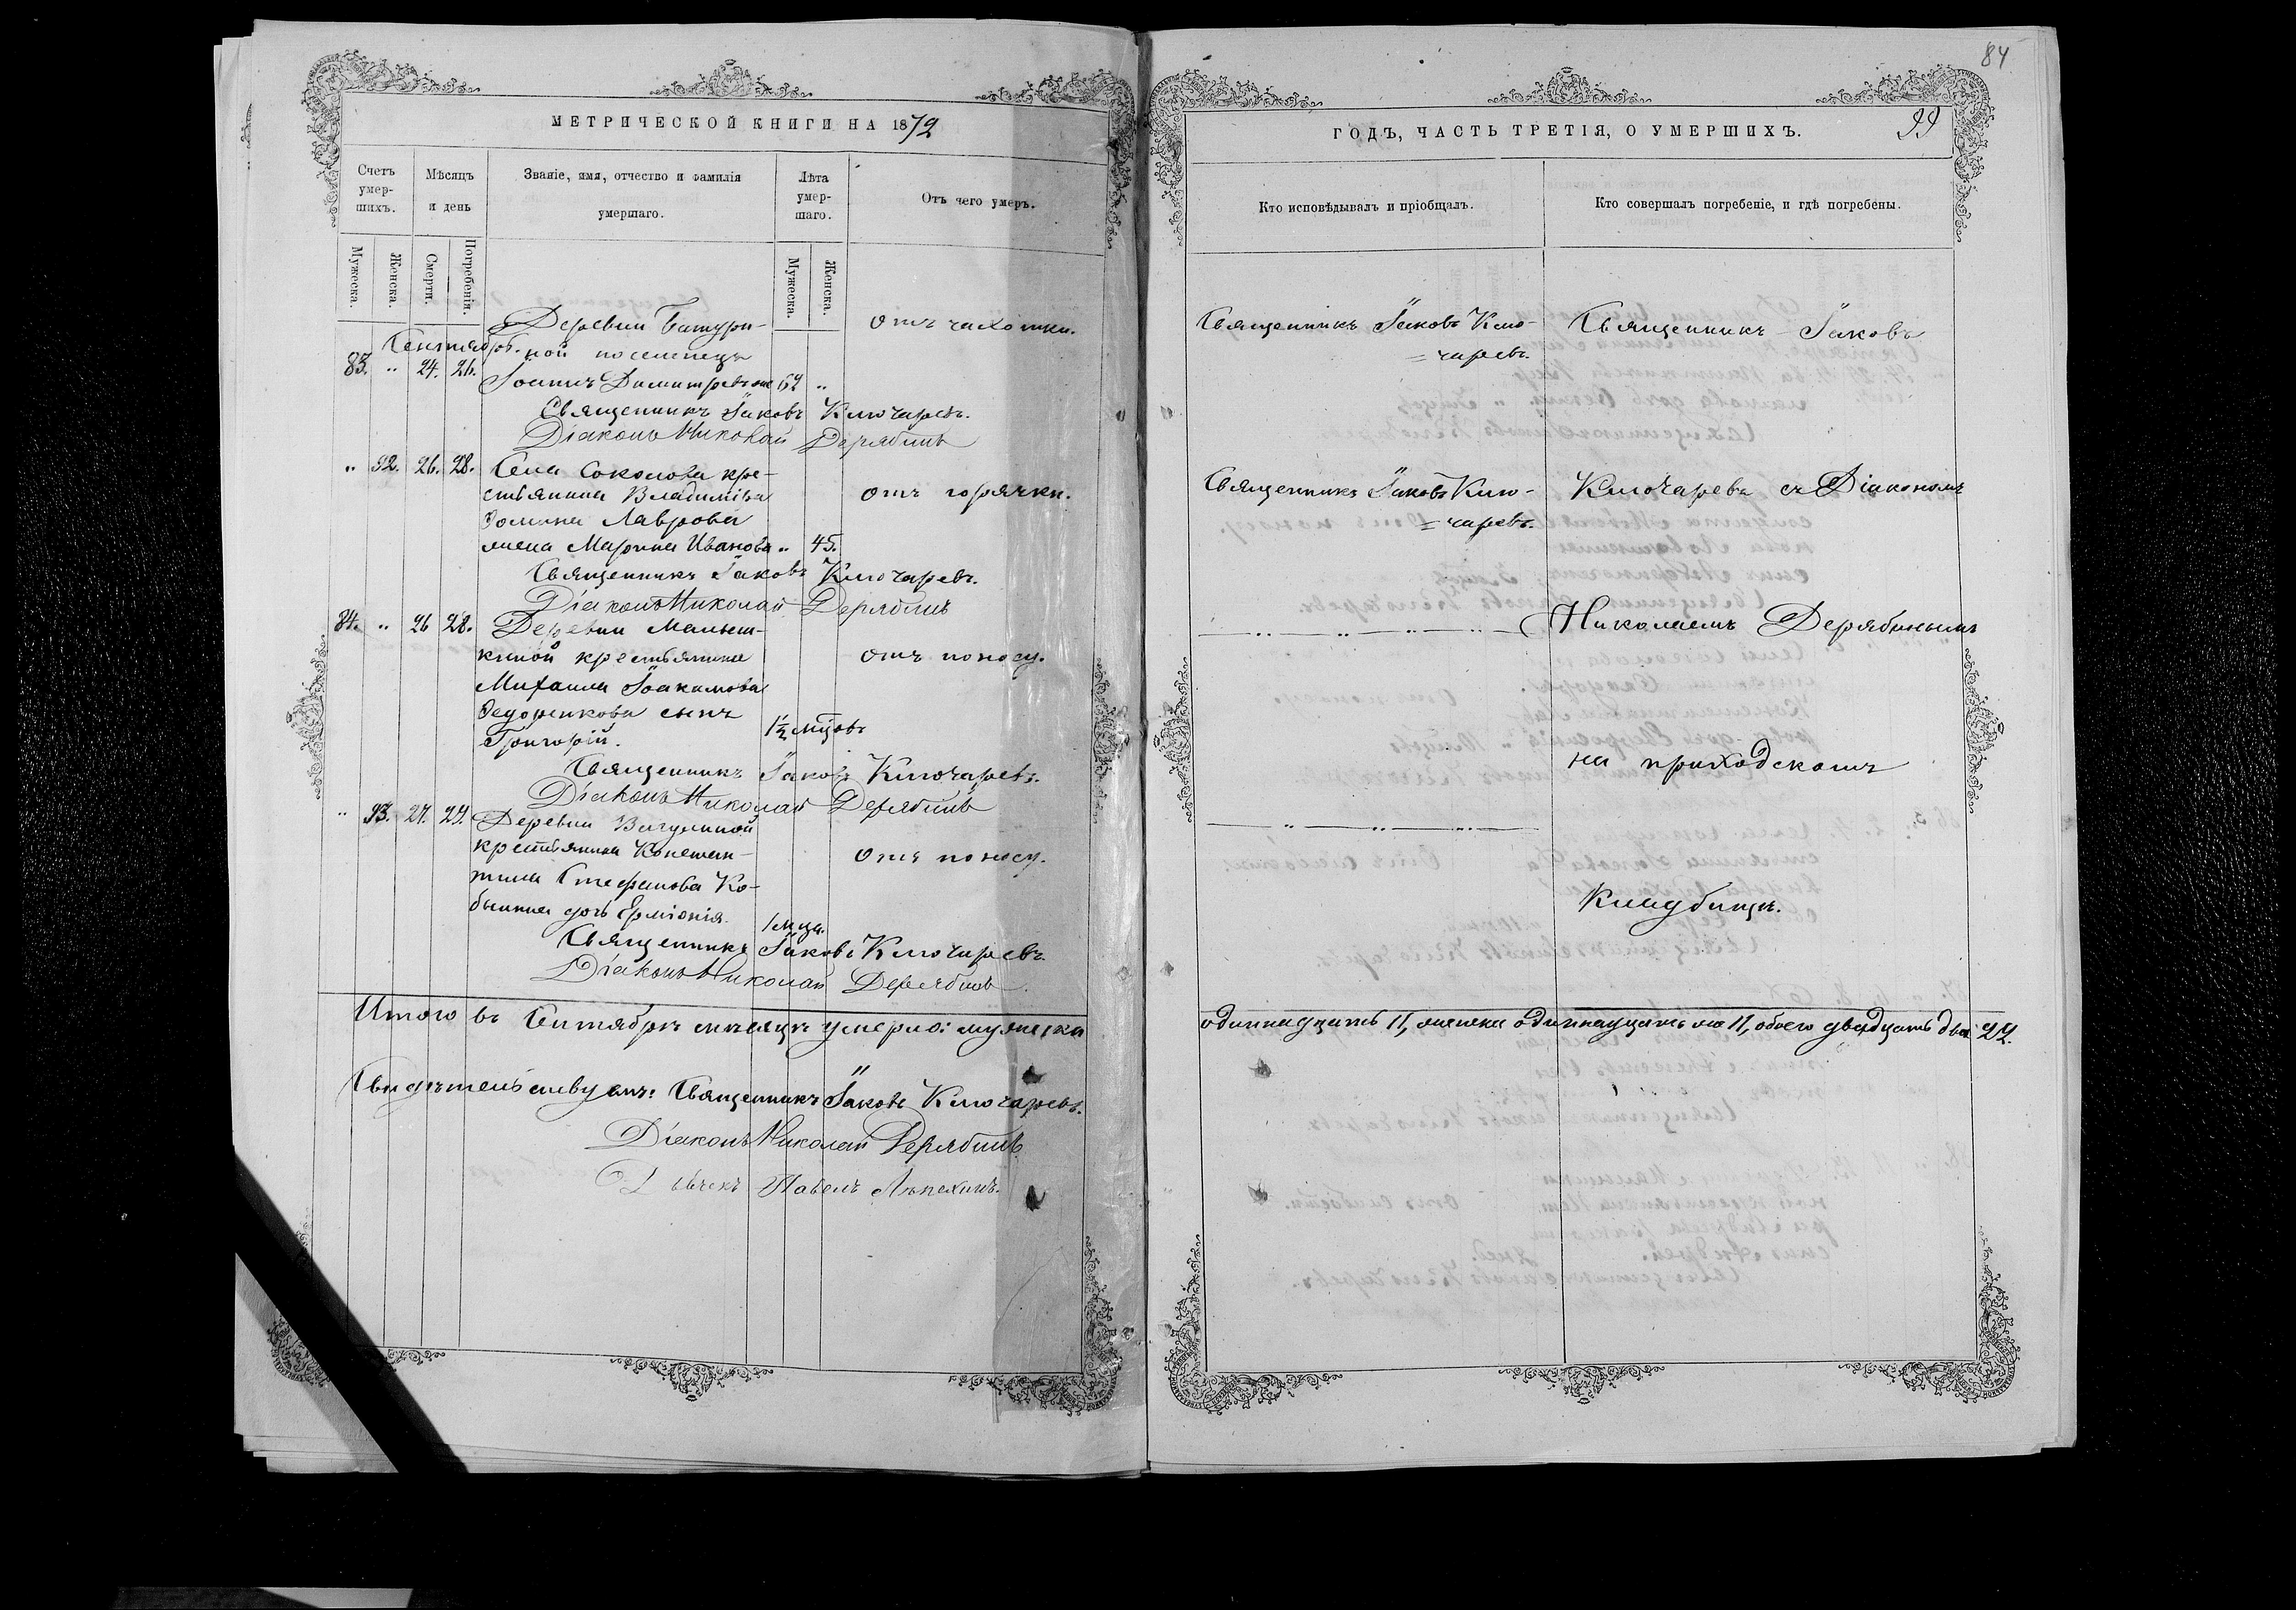 84
МЕТРИЧЕСКОЙ КНИГИ НА 1872
Счетъ умер-шихъ.
Мѣсяцъ и день
Званіе, имя, отчество и фамилія умершаго.
Лѣта умер-шаго.
Отъ чего умеръ.
Мужеска.
Женска.
Смерти.
Погребенія.
Мужеска.
Женска.
Сентябрь.
Деревни Батури-
ной поселенецъ
83. " 24. 26.
Іоаннъ Димитревъ 62 "
отъ чахотки.
Священникъ Іаковъ Ключаревъ.
Діаконъ Николай Дерябинъ
" 92. 26. 28. Села Соколова кре-
стьянина Владиміра
отъ горячки.
Ѳомина Лаврова
жена Марина Иванова " 45.
Священникъ Іаковъ Ключаревъ.
Діаконъ Николай Дерябинъ
84. " 26 28. Деревни Малыш-
киной крестьянина
отъ поносу.
Михаила Іоакимова
Ѳедоренкова сынъ
Григорій.
1½ мцовъ
Священникъ Іаковъ Ключаревъ.
Діаконъ Николай Дерябинъ
" 93. 27. 29. Деревни
крестьянина Констан-
отъ поносу.
тина Стефанова Ко-
былина дочь Ерміонія.
1 мца.
Священникъ Іаковъ Ключаревъ.
Діаконъ Николай Дерябинъ.
Итого въ Сентябрѣ мѣсяцѣ умерло: мужеска
Свидѣтельствуемъ: Священникъ Іаковъ Ключаревъ.
Діаконъ Николай Дерябинъ.
Павелъ Лѣпехинъ.
ГОДЪ, ЧАСТЬ ТРЕТІЯ, О УМЕРШИХЪ.
99
Кто исповѣдывалъ и пріобщалъ.
Кто совершалъ погребеніе, и гдѣ погребены.
Священникъ Іаковъ Клю-
=чаревъ.
Священникъ Іаковъ
Священникъ Іаковъ Клю-
=чаревъ.
Ключаревъ съ Діакономъ
Николаемъ Дерябинымъ
на приходскомъ
Кладбищѣ.
одиннадцать 11, женска одиннадцать же 11, обоего двадцать два 22.